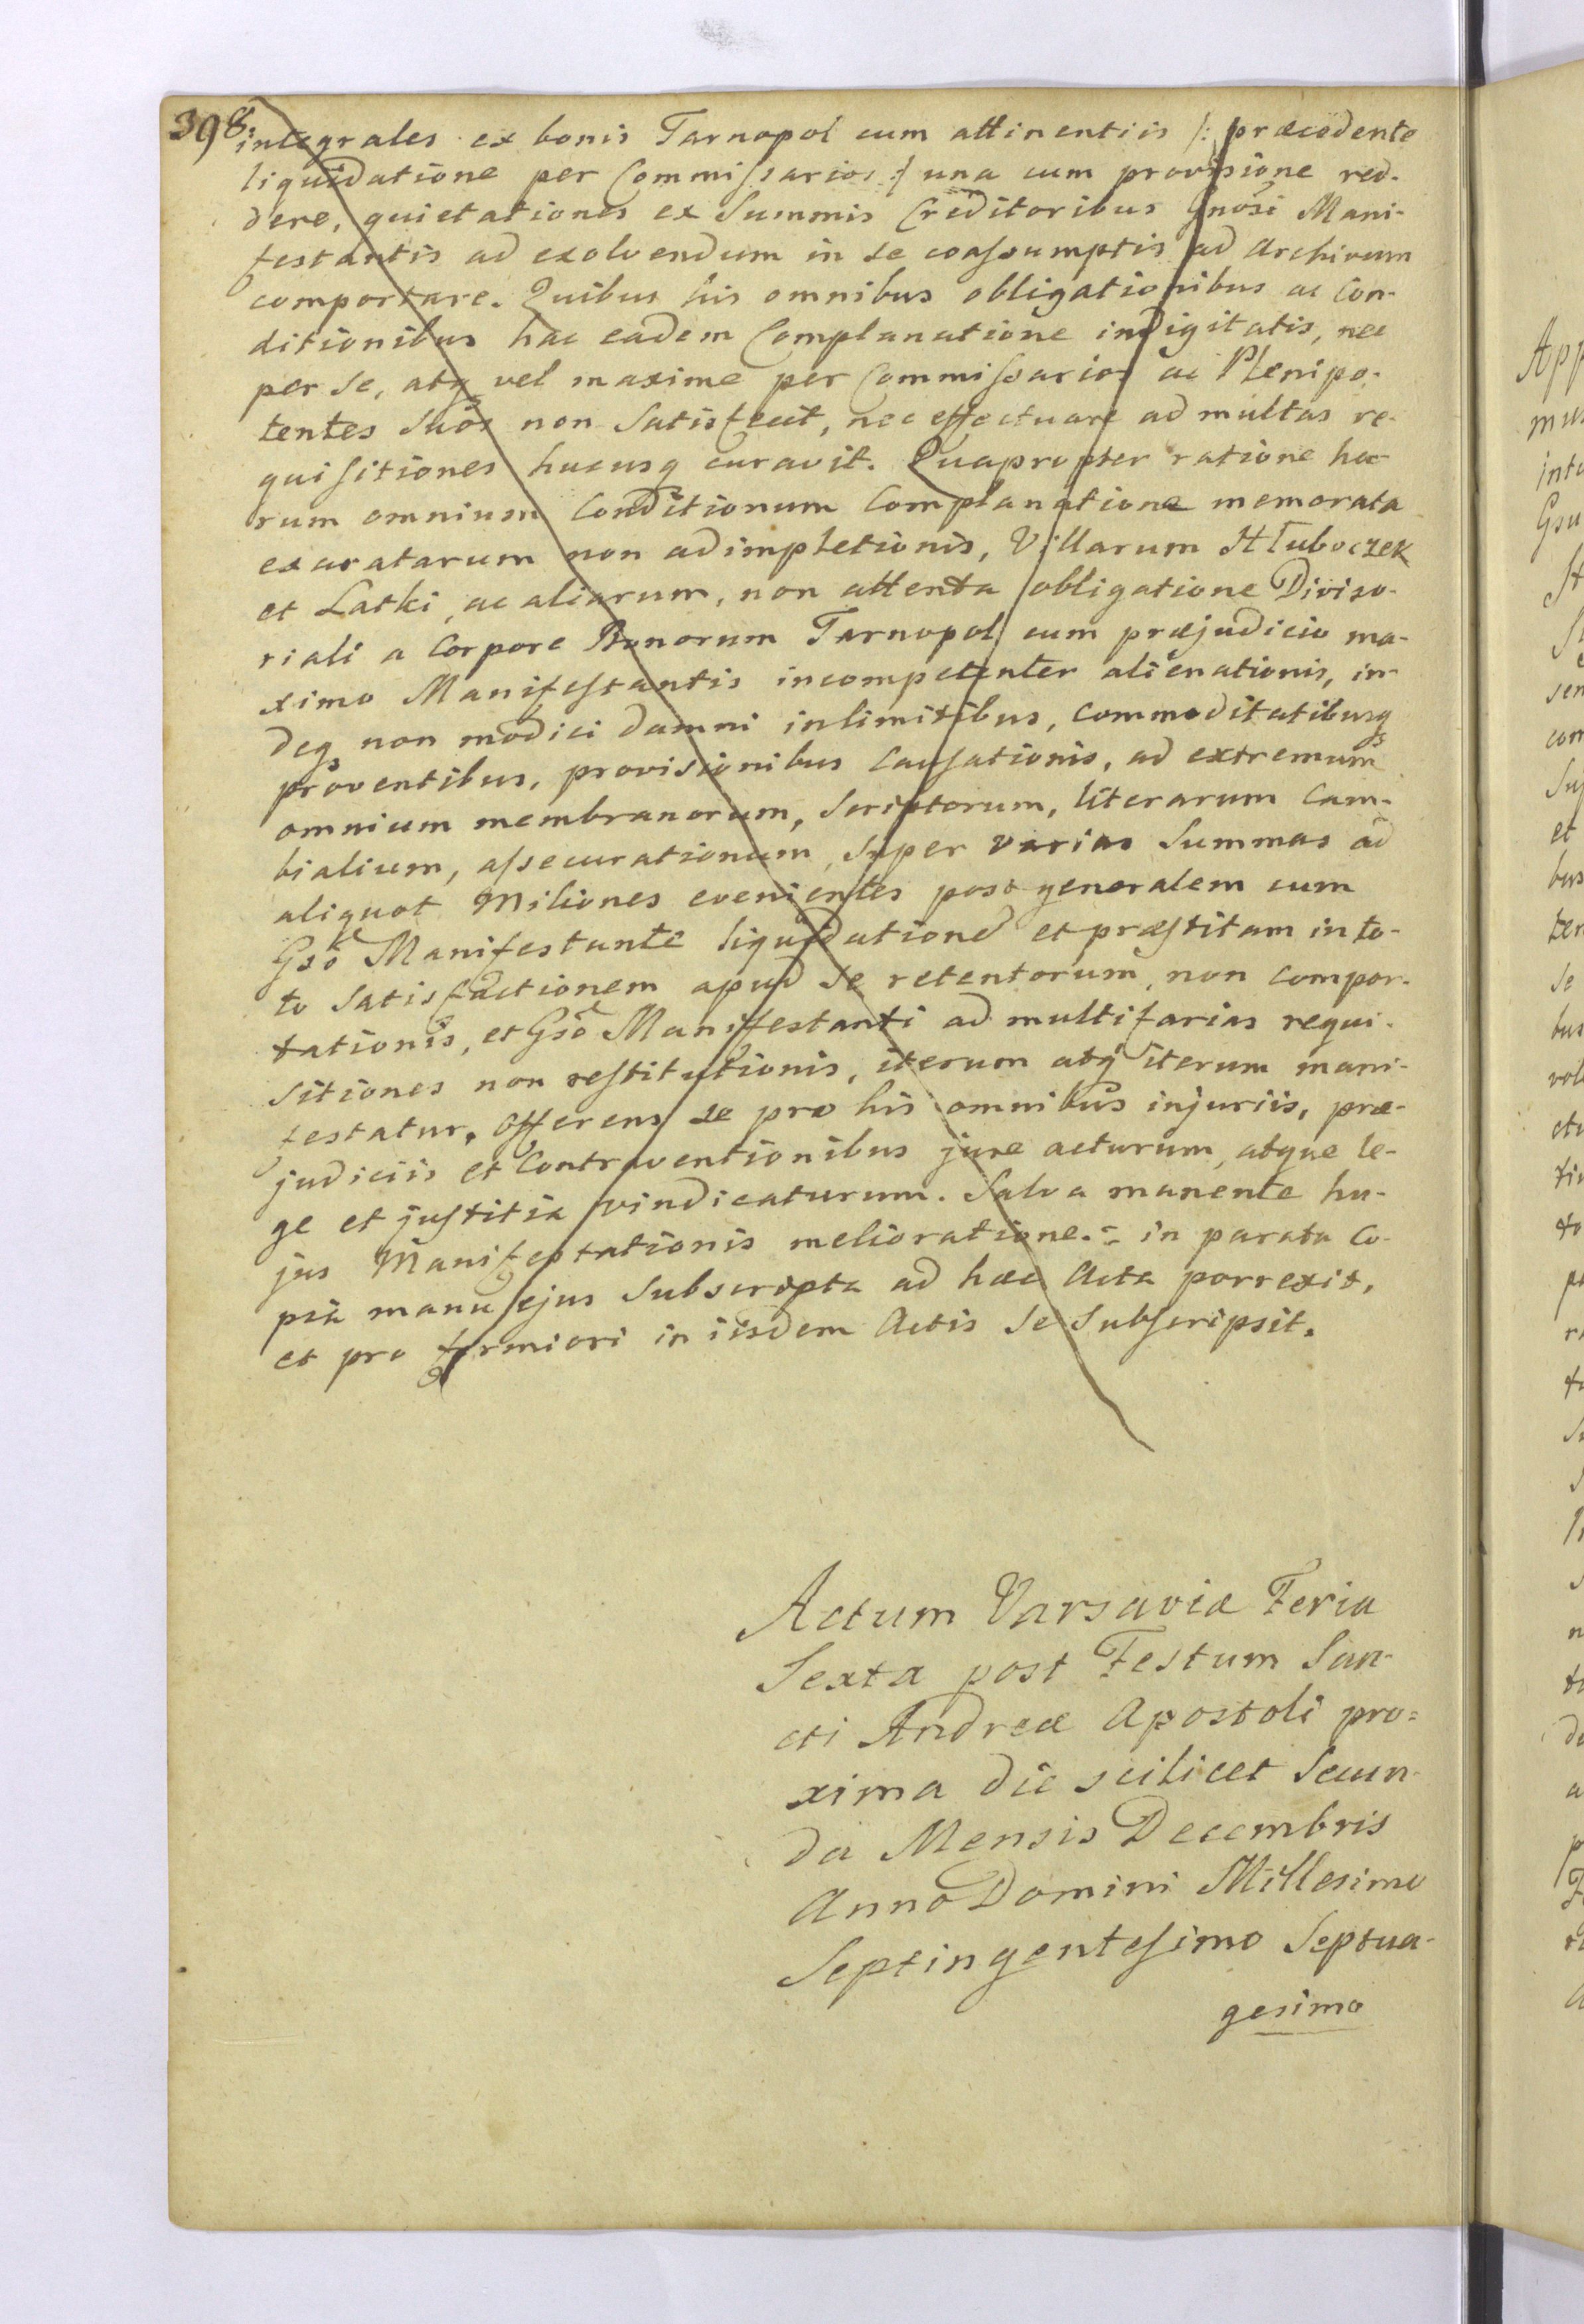 398.
integrales ex bonis Tarnopol cum attinentiis /: præcedente
liquidatione per Commissarios :/ una cum provisione red-
dere, quietationes ex Summis Creditoribus Gnosi Mani-
festantis ad exolvendum in se coassumptis ad Archivum
comportare. Quibus his omnibus obligationibus ac Con-
ditionibus hac eadem Complanatione indigitatis, nec
per se, atq vel maxime per Commissarios ac Plenipo-
tentes suos non Satisfecit, nec effectuare ad multas re-
quisitiones hucusq curavit. Quapropter ratione ho-
rum omnium Conditionum Complanatione memorata
exaratarum non adimpletionis, Villarum Hłuboczek
et Latki, ac aliarum, non attenta obligatione Diviso-
riali a Corpore Bonorum Tarnopol cum præjudicio ma-
ximo Manifestantis incompetenter alienationis, in-
deq non modici damni inlimitibus, Commoditatibusq
proventibus, provisionibus Causationis, ad extremum
omnium membranorum, Scriptorum, literarum Cam-
bialium, assecurationum, Super varias Summas ad
aliquot Miliones evenientes post generalem cum
Gso Manifestante liquidatione et præstitam in to-
to Satisfactionem apud se retentorum, non Compor-
tationis, et Gso Manifestanti ad multifarias requi-
sitiones non restitutionis, iterum atq iterum mani-
festatur. Offerens se pro his omnibus injuriis, præ-
judiciis et Contraventionibus jure acturum, atque le-
ge et justitia vindicaturum. Salva manente hu-
jus Manifestationis melioratione. = in parata Co-
pia manu ejus Subscripta ad hæc Acta porrexit,
et pro firmiori in iisdem Actis Se Subscripsit.
Actum Varsaviæ Feria
Sexta post Festum San-
cti Andreæ Apostoli pro=
xima die scilicet Secun-
da Mensis Decembris
Anno Domini Millesimo
Septingentesimo Septua-
gesimo
App
mus
inte
Gsu